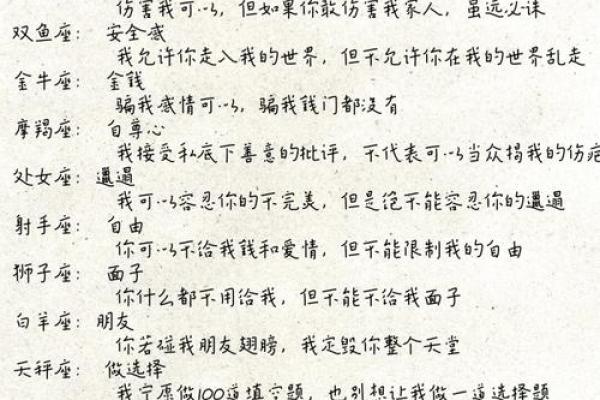 伤害我可以，但如果你敢伤害我家人，虽远必诛
双鱼座： 安全感
我允许你走入我的世界，但不允许你在我的世界乱走
金牛座： 金钱
骗我感情可以，骗我钱门都没有
摩羯座： 自尊心
我接受私底下善意的批评，不代表可以当众揭我的伤疤
处女座：邋遢
我可以容忍你的不完美，但是绝不能容忍你的邋遢
射手座： 自由
你可以不给我钱和爱情，但不能限制我的自由
狮子座： 面子
你什么都不用给我，但不能不给我面子
白羊座：朋友
你若碰我朋友翅膀，我定毁你整个天堂
天秤座： 做选择
我宁愿做100道填空题，也别想让我做一道选择题